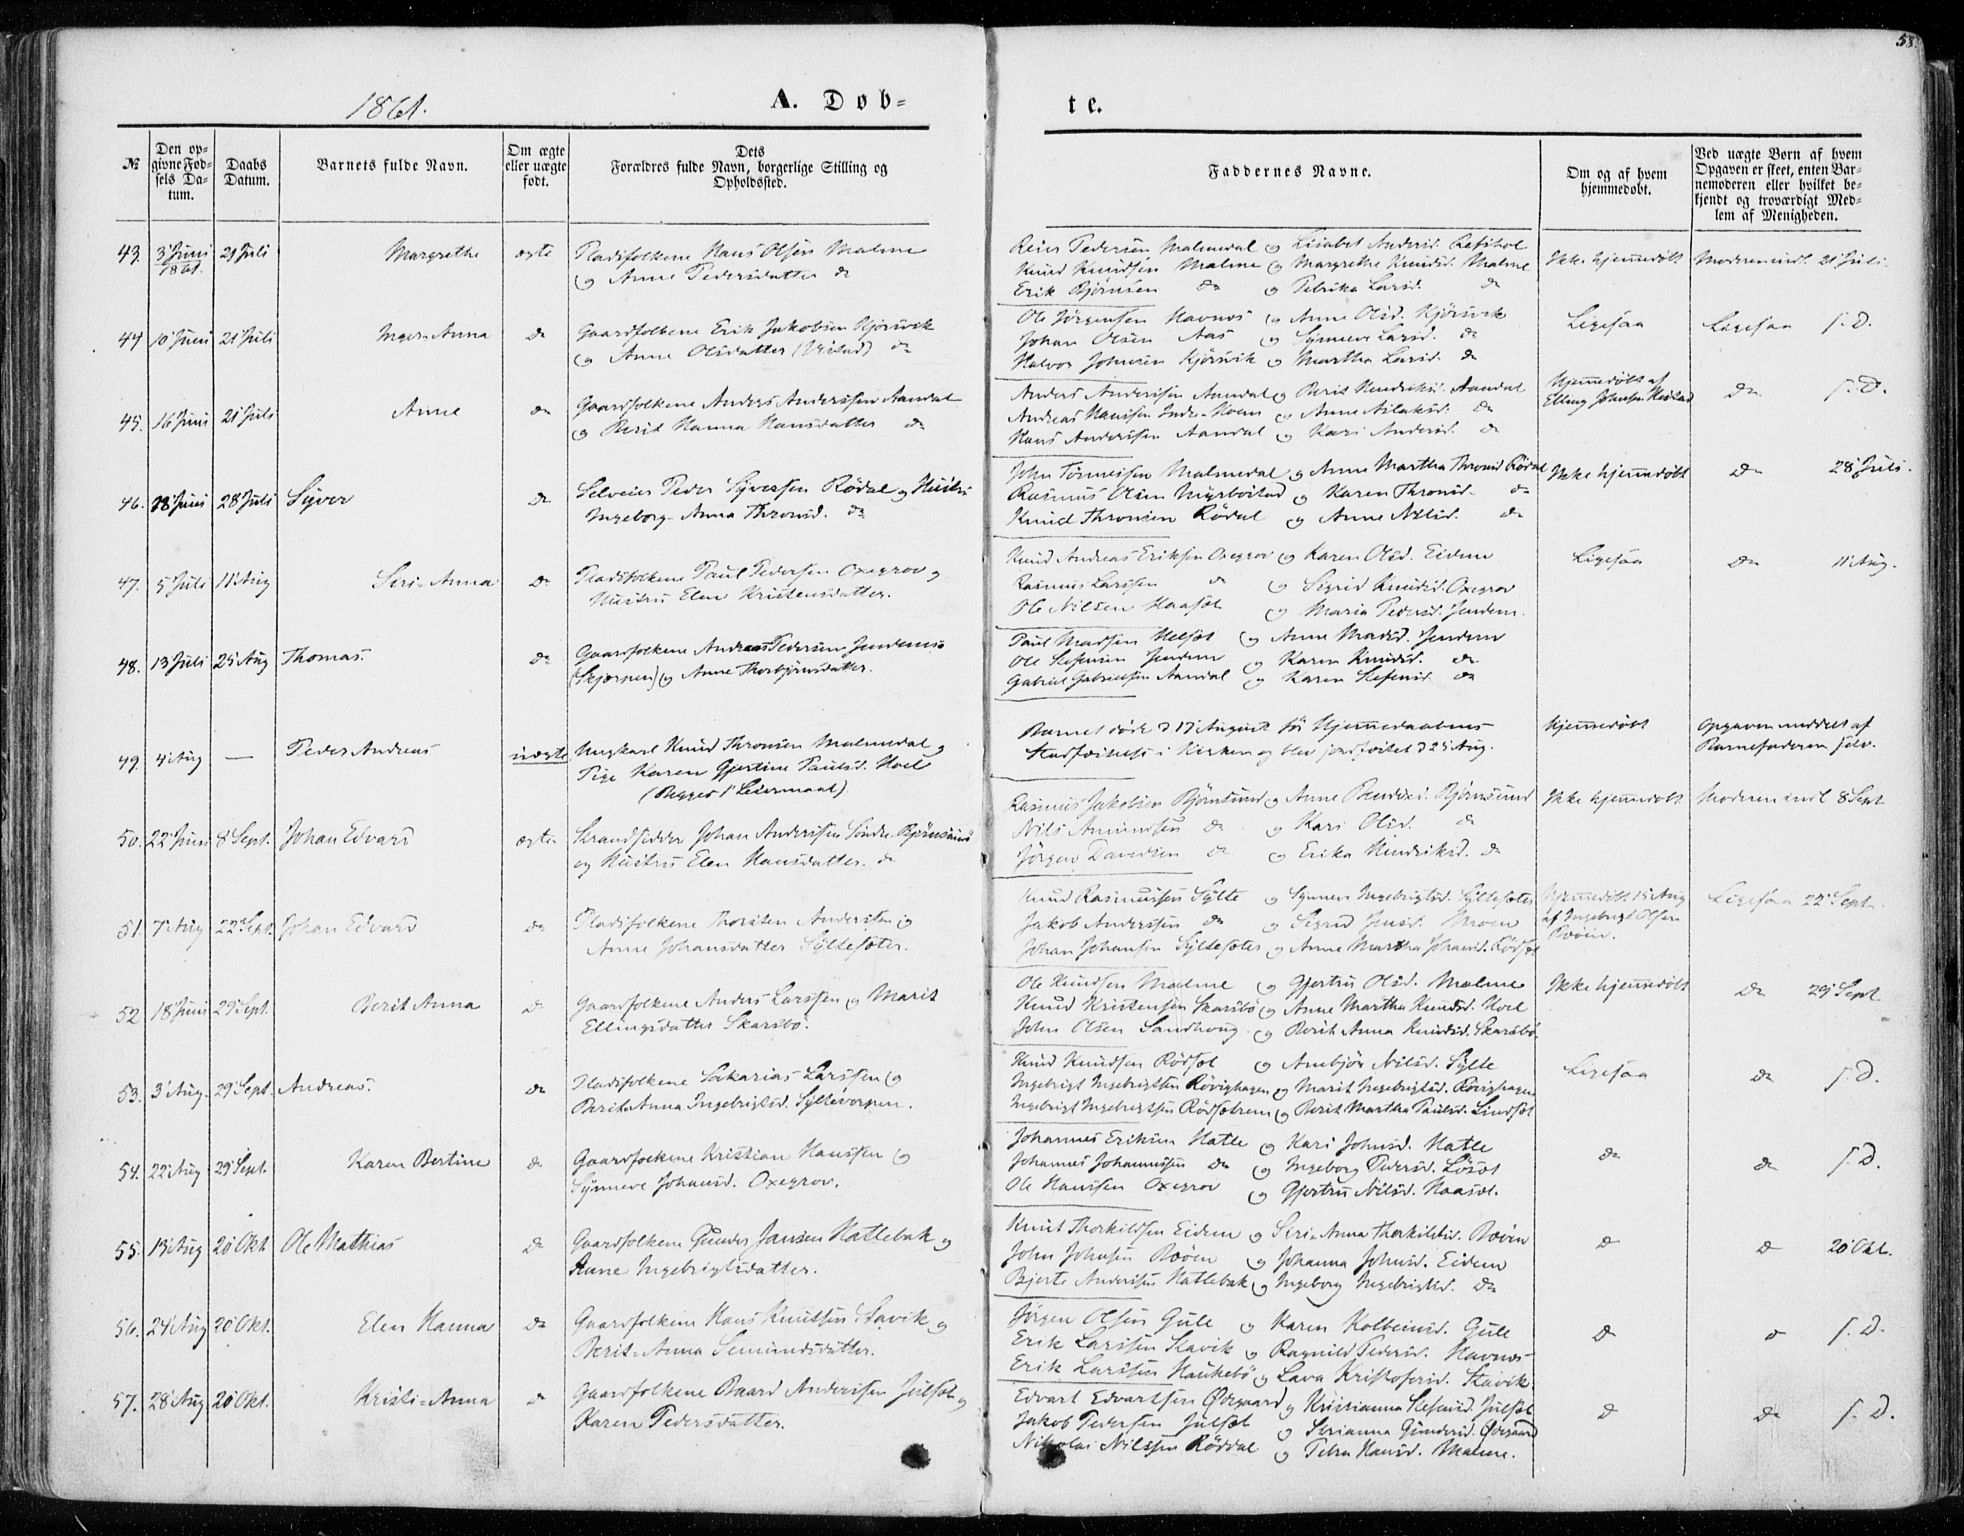 58.
1861.
A. Døb=
te.
№
Den op=
givne Fød=
sels Da=
tum.
Daabs
Datum.
Barnets fulde Navn.
Om ægte
eller uægte
født.
Dets
Forældres fulde Navn, borgerlige Stilling og
Opholdssted.
Faddernes Navne.
Om og af hvem
hjemmedøbt.
Ved uægte Børn af hvem
Opgaven er skeet, enten Bar=
nemoderen eller hvilket be=
kjendt og troværdigt Med=
lem af Menigheden.
43. 3 Juni 1861. 21 Juli Margrethe ægte Pladsfolkene Hans Olsen Malme
og Anne Pedersdatter do
Reier Pedersen Malmedal og Lisabet Andersd.
Knud Knudsen Malme og Margrethe Knudsd. Malme
Erik Bjørnsen do og Petrika Larsd. do
Ikke hjemmedøbt Moderen indl 21 Juli.
44 10 Juni 21 Juli Inger=Anna do Gaardfolkene Erik Jakobsen Kjørsvik
og Anne Olsdatter do
Ole Jørgensen Havnes og Anne Olsd. Kjørsvik
Johan Olsen Aas og Synneve Larsd. do
Halvor Johnsen Kjørsvik og Martha Larsd. do
Ligesaa Ligesaa s. D.
45. 16 Juni 21 Juli Anne do Gaardfolkene Anders Anderssen Aandal
og Berit Hanna Hansdatter do
Anders Anderssen Aandal og Berit Hendriksd. Aandal
Andreas Hanssen Indre=Hoem og Anne Aslaksd. do
Hans Anderssen Aandal og Kari Andersd. do
Hjemmedøbt af
Elling Johnsen
do s. D.
46. 28 Juni 28 Juli Syver do Selveier Peder Syversen Rødal og Hustru
Ingeborg=Anna Thronsd. do
John Tønnesen Malmedal og Anne Martha Thronsd Rødal
Rasmus Olsen Myrbøstad og Karen Thronsd. do
Knud Thronsen Rødal og Anne Nilsd. do
Ikke hjemmedøbt do 28 Juli.
47. 5 Juli 11 Aug Seri=Anna do Pladsfolkene Paul Pedersen Oxegrov og
Hustru Elen Kristensdatter.
Knud Andreas Eriksen Oxegrov og Karen Olsd. Eidem
Rasmus Larssen do og Sigrid Knudsd. Oxegrov
Ole Nilsen Haaset og Maria Pedersd. Jendem.
Ligesaa do 11 Aug.
48. 13 Juli 25 Aug Thomas. do Gaardfolkene Andreas Pedersen Jendems
og Anne Thorbjørnsdatter.
Paul Madsen Helset og Anne Madsd. Jendem
Ole Stefensen Jendem og Karen Knudsd. do
Gabriel Gabrielsen Aandal og Karen Stefensd. do
49. 4 Aug — Peder Andreas uægte Ungkarl Knud Thronsen Malmedal og
Pige Karen Gjertine Paulsd. Hoel
(Begges 1' Leiermaal)
Barnet døde d 17 August før Hjemmedaabens
Stadfæstelse i Kirken og blev jordfæstet d 25 Aug.
hjemmedøbt
Opgaven meddelt af
Barnefaderen selv.
50. 22 Juni 8 Sept. Johan Edvard ægte Strandsidder Johan Anderssen Søndre=Bjørnsund
og Hustru Elen Hansdatter. do
Rasmus Jakobsen Bjørnsund og Anne Bendixd. Bjørnsund
Nils Amundsen do og Kari Olsd. do
Jørgen Davidsen do og Erika Hendriksd. do
Ikke hjemmedøbt Moderen indl 8 Sept
51. 7 Aug 22 Sept. Johan Edvard do Pladsfolkene Thorsten Anderssen og
Anne Johansdatter Syltesæter.
Knud Rasmussen Sylte og Synneve Ingebrigtsd. Syltesæter
Jakob Anderssen do og Sigrid Jensd. Moen
Johan Johansen Syltesæter og Anne Martha Johansd. Rødset
Hjemmedøbt 15 Aug
af Ingebrigt Olsen
Ligesaa 22 Sept.
52 18 Juni 29 Sept. Berit Anna do Gaardfolkene Anders Larssen og Marit
Ellingsdatter Skarsbø.
Ole Knudsen Malme og Gjertru Olsd. Malme
Knud Kristensen Skarsbø og Anne Martha Knudsd. Hoel
John Olsen Sandhoug og Berit Anna Knudsd. Skarsbø
Ikke hjemmedøbt do 29 Sept
53. 3 Aug. 29 Sept. Andreas. do Pladsfolkene Sakarias Larssen og
Berit=Anna Ingebrigtsd. Syltevorpen.
Knud Knudsen Rødset og Anebjør Nilsd. Sylte
Ingebrigt Ingebrigtsen Røvighagen og Marit Ingebrigtsd. Røvighagen
Ingebrigt Ingebrigtsen Rødsetrem og Berit Martha Paulsd. Lindset
Ligesaa do s. D.
54. 22 Aug 29 Sept. Karen Bertine do Gaardfolkene Kristian Hanssen og
Synneve Johansd. Oxegrov.
Johannes Eriksen Hatle og Kari Johnsd. Hatle
Johannes Johannessen do og Ingeborg Pedersd. Løset
Ole Hanssen Oxegrov og Gjertru Nilsd. Haaset.
do do s. D.
55. 13 Aug 20 Okt Ole Mathias do Gaardfolkene Gunder Jansen Hatlebak og
Anne Ingebrigtsdatter.
Knut Thorkildsen Eidem og Seri=Anna Thorkildsd. Bøen
John Johnsen Bøen og Johanna Johnsd. Eidem
Bjerte Anderssen Hatlebak og Ingeborg Ingebrigtsd. do
do do 20 Okt.
56. 24 Aug 20 Okt. Elen Hanna do Gaardfolkene Hans Knutsen Stavik og
Berit=Anna Semundsdatter.
Jørgen Olsen Gule og Karen Kolbeinsd. Gule
Erik Larssen Stavik og Ragnild Pedersd. Havnes
Erik Larssen Haukebø og Lava Kristofersd. Stavik.
do do s. D.
57. 28 Aug 20 Okt. Kristi=Anna do Gaardfolkene Baard Anderssen Julset og
Karen Pedersdatter.
Edvart Edvartsen Ødegaard og Kristianna Stefensd. Julset
Jakob Pedersen Julset og Serianna Gundersd. Ødegaard
Nikolai Nilssen Røddal og Petra Hansd. Malme.
do do s. D.